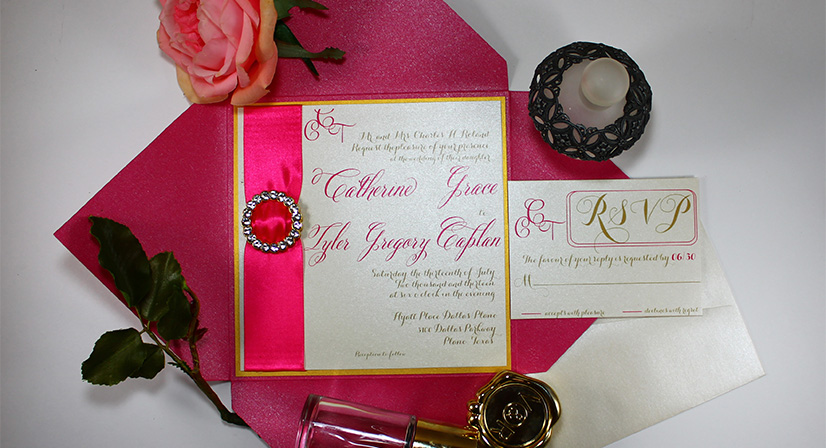 CCT
Mr and Mrs Charles H Roland
Request the pleasure of your presence
at the wedding of their daughter
Catherine Grace
to
Tyler Gregory Caplan
Saturday the thirteenth of July
Two thousand and thirteen
at six o clock in the evening
Hyatt Place Dallas Plano
3100 Dallas Parkway
Plano Texas
Reception to follow
CCT
RSVP
The favour of your reply is requested by 06/30
M
accepts with pleasure declines with regret